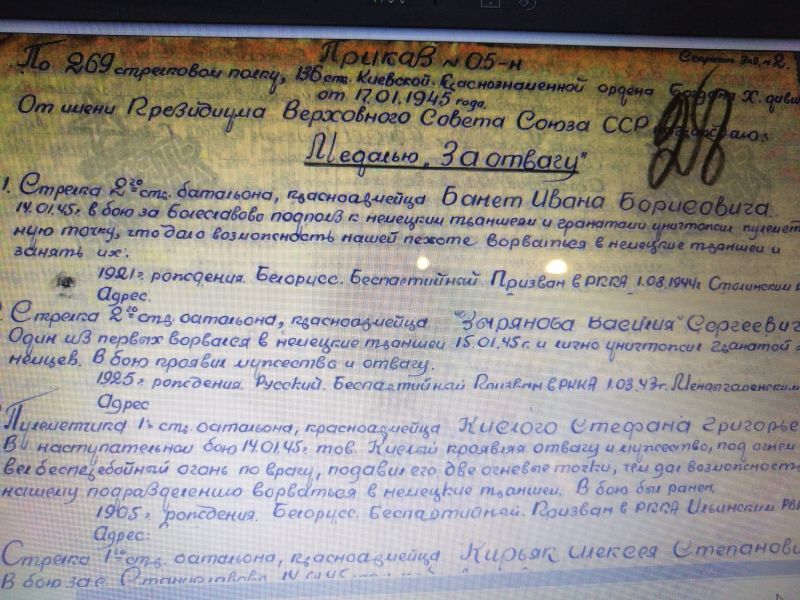 Приказ № 05-н
Секретно Экз. № 2.
По 269 стрелковом полку, 136 стр. Киевской Краснознаменной ордена Богдана Х. диви
от 17.01.1945 года.
От имени Президиума Верховного Совета Союза ССР награждаю:
218
Медалью „За отвагу"
1. Стрелка 2го стр. батальона, красноармейца Банет Ивана Борисовича.
14.01.45г. в бою за Болеславово подполз к немецким траншеям и гранатами уничтожил пулемет
ную точку, что дало возможность нашей пехоте ворваться в немецкие траншеи и
занять их.
1921г. рождения. Белорусс. Беспартийный. Призван в РККА 1.08.1944г Столинским
Адрес.
Стрелка 2го стр. батальона, красноармейца Зырянова Василия Сергеевич
Один из первых ворвался в немецкие траншеи 15.01.45г. и лично уничтожил гранатой
немцев. В бою проявил мужество и отвагу.
1925г. рождения. Русский. Беспартийный Призван в РККА 1.03.43г. Мендыгаренским
Адрес
Пулеметчика 1го стр. батальона, красноармейца Кислого Стефана Григорье
В наступательном бою 14.01.45г. тов. Кислый проявляя отвагу и мужество, под огнем
вел бесперебойный огонь по врагу, подавил его две огневые точки, чем дал возможность
нашему подразделению ворваться в немецкие траншеи. В бою был ранен
1905г. рождения. Белорусс. Беспартийный. Призван в РККА Ильинским РВК
Адрес:
Стрелка 1го стр. батальона, красноармейца Кирьяк Алексея Степанови
В бою за с.